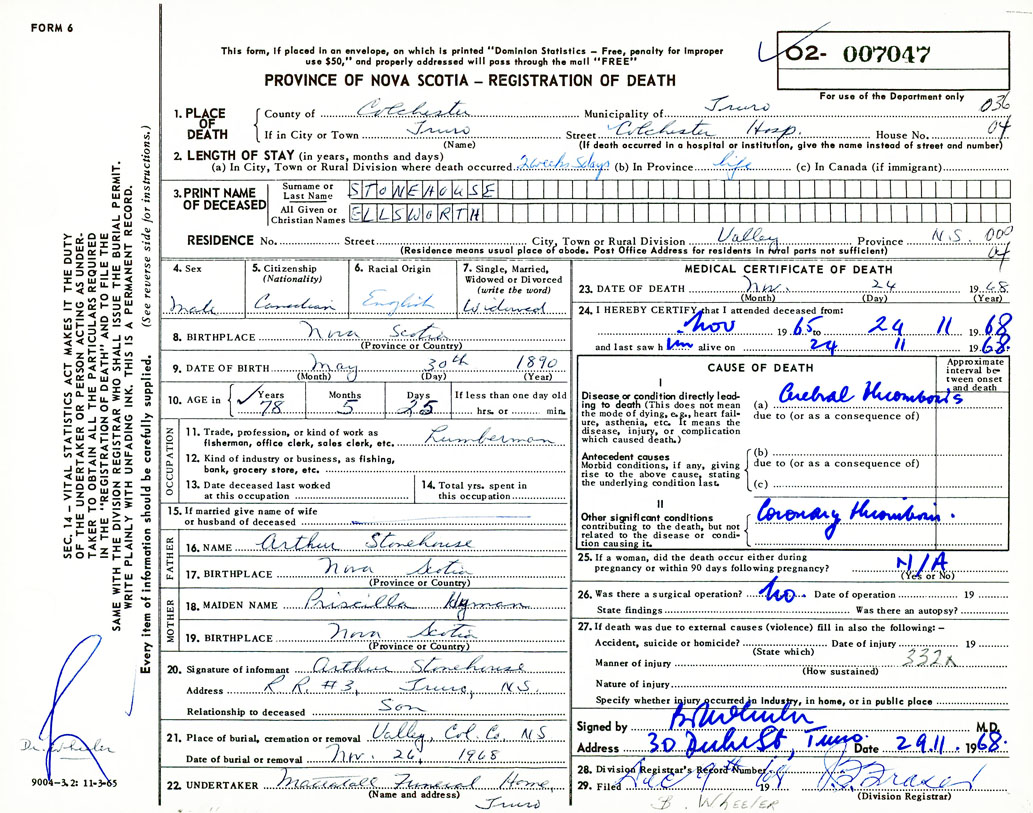 FORM 6
This form, if placed in an envelope, on which is printed "Dominion Statistics – Free, penalty for improper
use $50," and properly addressed will pass through the mail "FREE"
PROVINCE OF NOVA SCOTIA – REGISTRATION OF DEATH
02- 007047
For use of the Department only
036
04
1. PLACE OF DEATH
County of Colchester Municipality of Truro
If in City or Town Truro Street Colchester Hosp. House No.
(Name) (If death occurred in a hospital or institution, give the name instead of street and number)
2. LENGTH OF STAY (in years, months and days)
(a) In City, Town or Rural Division where death occurred 2 weeks 5 days (b) In Province life (c) In Canada (if immigrant)
3. PRINT NAME OF DECEASED
Surname or Last Name STONEHOUSE
All Given or Christian Names ELLSWORTH
RESIDENCE No. Street City, Town or Rural Division Valley Province N.S. 000
(Residence means usual place of abode. Post Office Address for residents in rural parts not sufficient) 04
4. Sex Male
5. Citizenship (Nationality) Canadian
6. Racial Origin English
7. Single, Married, Widowed or Divorced (write the word) Widowed
8. BIRTHPLACE Nova Scotia
(Province or Country)
9. DATE OF BIRTH May 30th 1890
(Month) (Day) (Year)
10. AGE in Years 78 Months 5 Days 25 If less than one day old hrs. or min.
OCCUPATION
11. Trade, profession, or kind of work as
fisherman, office clerk, sales clerk, etc. Lumberman
12. Kind of industry or business, as fishing,
bank, grocery store, etc.
13. Date deceased last worked
at this occupation
14. Total yrs. spent in
this occupation
15. If married give name of wife
or husband of deceased
FATHER
16. NAME Arthur Stonehouse
17. BIRTHPLACE Nova Scotia
(Province or Country)
MOTHER
18. MAIDEN NAME Priscilla Hyman
19. BIRTHPLACE Nova Scotia
(Province or Country)
20. Signature of informant Arthur Stonehouse
Address R.R. #3, Truro, N.S.
Relationship to deceased Son
21. Place of burial, cremation or removal Valley, Col. Co. N S
Date of burial or removal Nov. 26, 1968
22. UNDERTAKER Mattatall Funeral Home,
(Name and address) Truro
MEDICAL CERTIFICATE OF DEATH
23. DATE OF DEATH Nov. 24 1968
(Month) (Day) (Year)
24. I HEREBY CERTIFY that I attended deceased from:
Nov 1965 to 24 11 1968
and last saw him alive on 24 11 1968.
CAUSE OF DEATH
Approximate interval between onset and death
I
Disease or condition directly leading to death (This does not mean the mode of dying, e.g., heart failure, asthenia, etc. It means the disease, injury, or complication which caused death.)
(a) Cerebral thrombosis
due to (or as a consequence of)
Antecedent causes
Morbid conditions, if any, giving rise to the above cause, stating the underlying condition last.
(b)
due to (or as a consequence of)
(c)
II
Other significant conditions
contributing to the death, but not related to the disease or condition causing it.
Coronary thrombosis.
25. If a woman, did the death occur either during
pregnancy or within 90 days following pregnancy? N/A
(Yes or No)
26. Was there a surgical operation? No. Date of operation 19
State findings Was there an autopsy?
27. If death was due to external causes (violence) fill in also the following: –
Accident, suicide or homicide? Date of injury 19
(State which)
Manner of injury 332x
(How sustained)
Nature of injury
Specify whether injury occurred in Industry, in home, or in public place
Signed by B Wheeler M.D.
Address 30 Duke St, Truro Date 29.11.1968.
28. Division Registrar's Record Number
29. Filed Dec 9th 19
(Division Registrar)
B. WHEELER
SEC. 14 – VITAL STATISTICS ACT MAKES IT THE DUTY
OF THE UNDERTAKER OR PERSON ACTING AS UNDER-
TAKER TO OBTAIN ALL THE PARTICULARS REQUIRED
IN THE "REGISTRATION OF DEATH" AND TO FILE THE
SAME WITH THE DIVISION REGISTRAR WHO SHALL ISSUE THE BURIAL PERMIT.
WRITE PLAINLY WITH UNFADING INK. THIS IS A PERMANENT RECORD.
Every item of information should be carefully supplied. (See reverse side for instructions.)
Dr. Wheeler
9004-3.2: 11-3-65